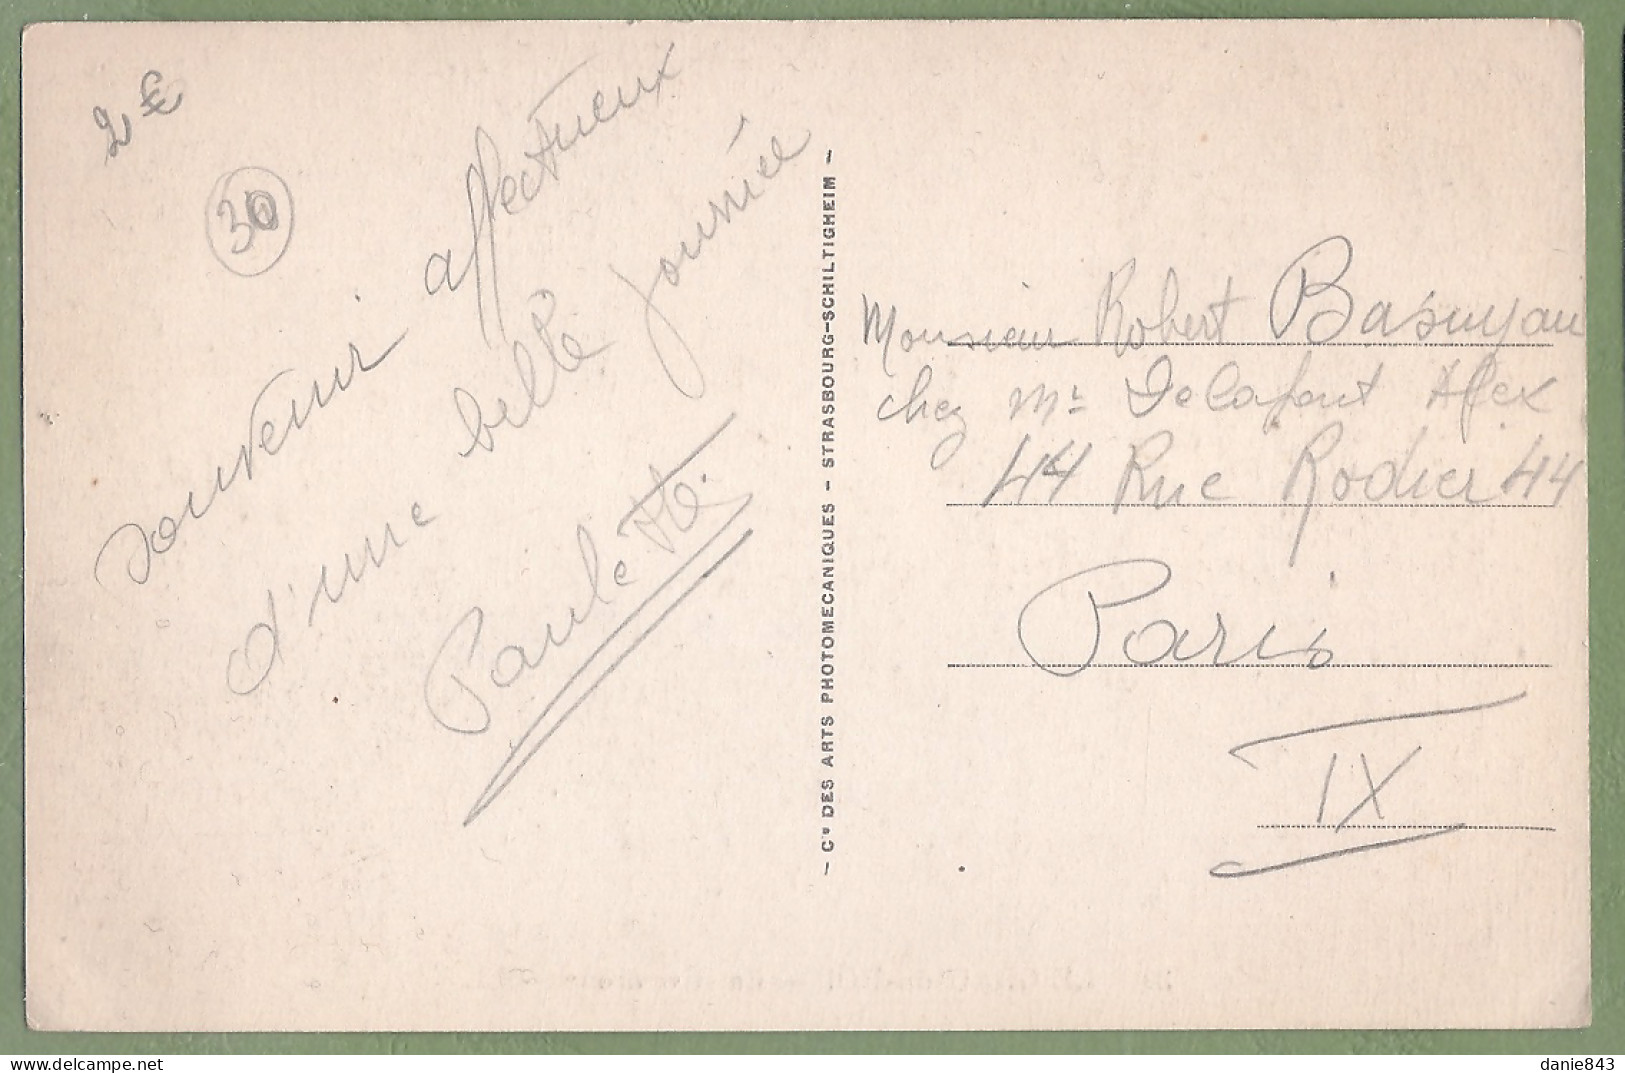 2 €
30
Souvenir affectueux
d'une belle journée
Paulette.
— Cie DES ARTS PHOTOMECANIQUES - STRASBOURG-SCHILTIGHEIM —
Monsieur Robert Basuyau
chez Mr Delafont Alex
44 Rue Rodier 44
Paris
IX
danie843
delcampe.net